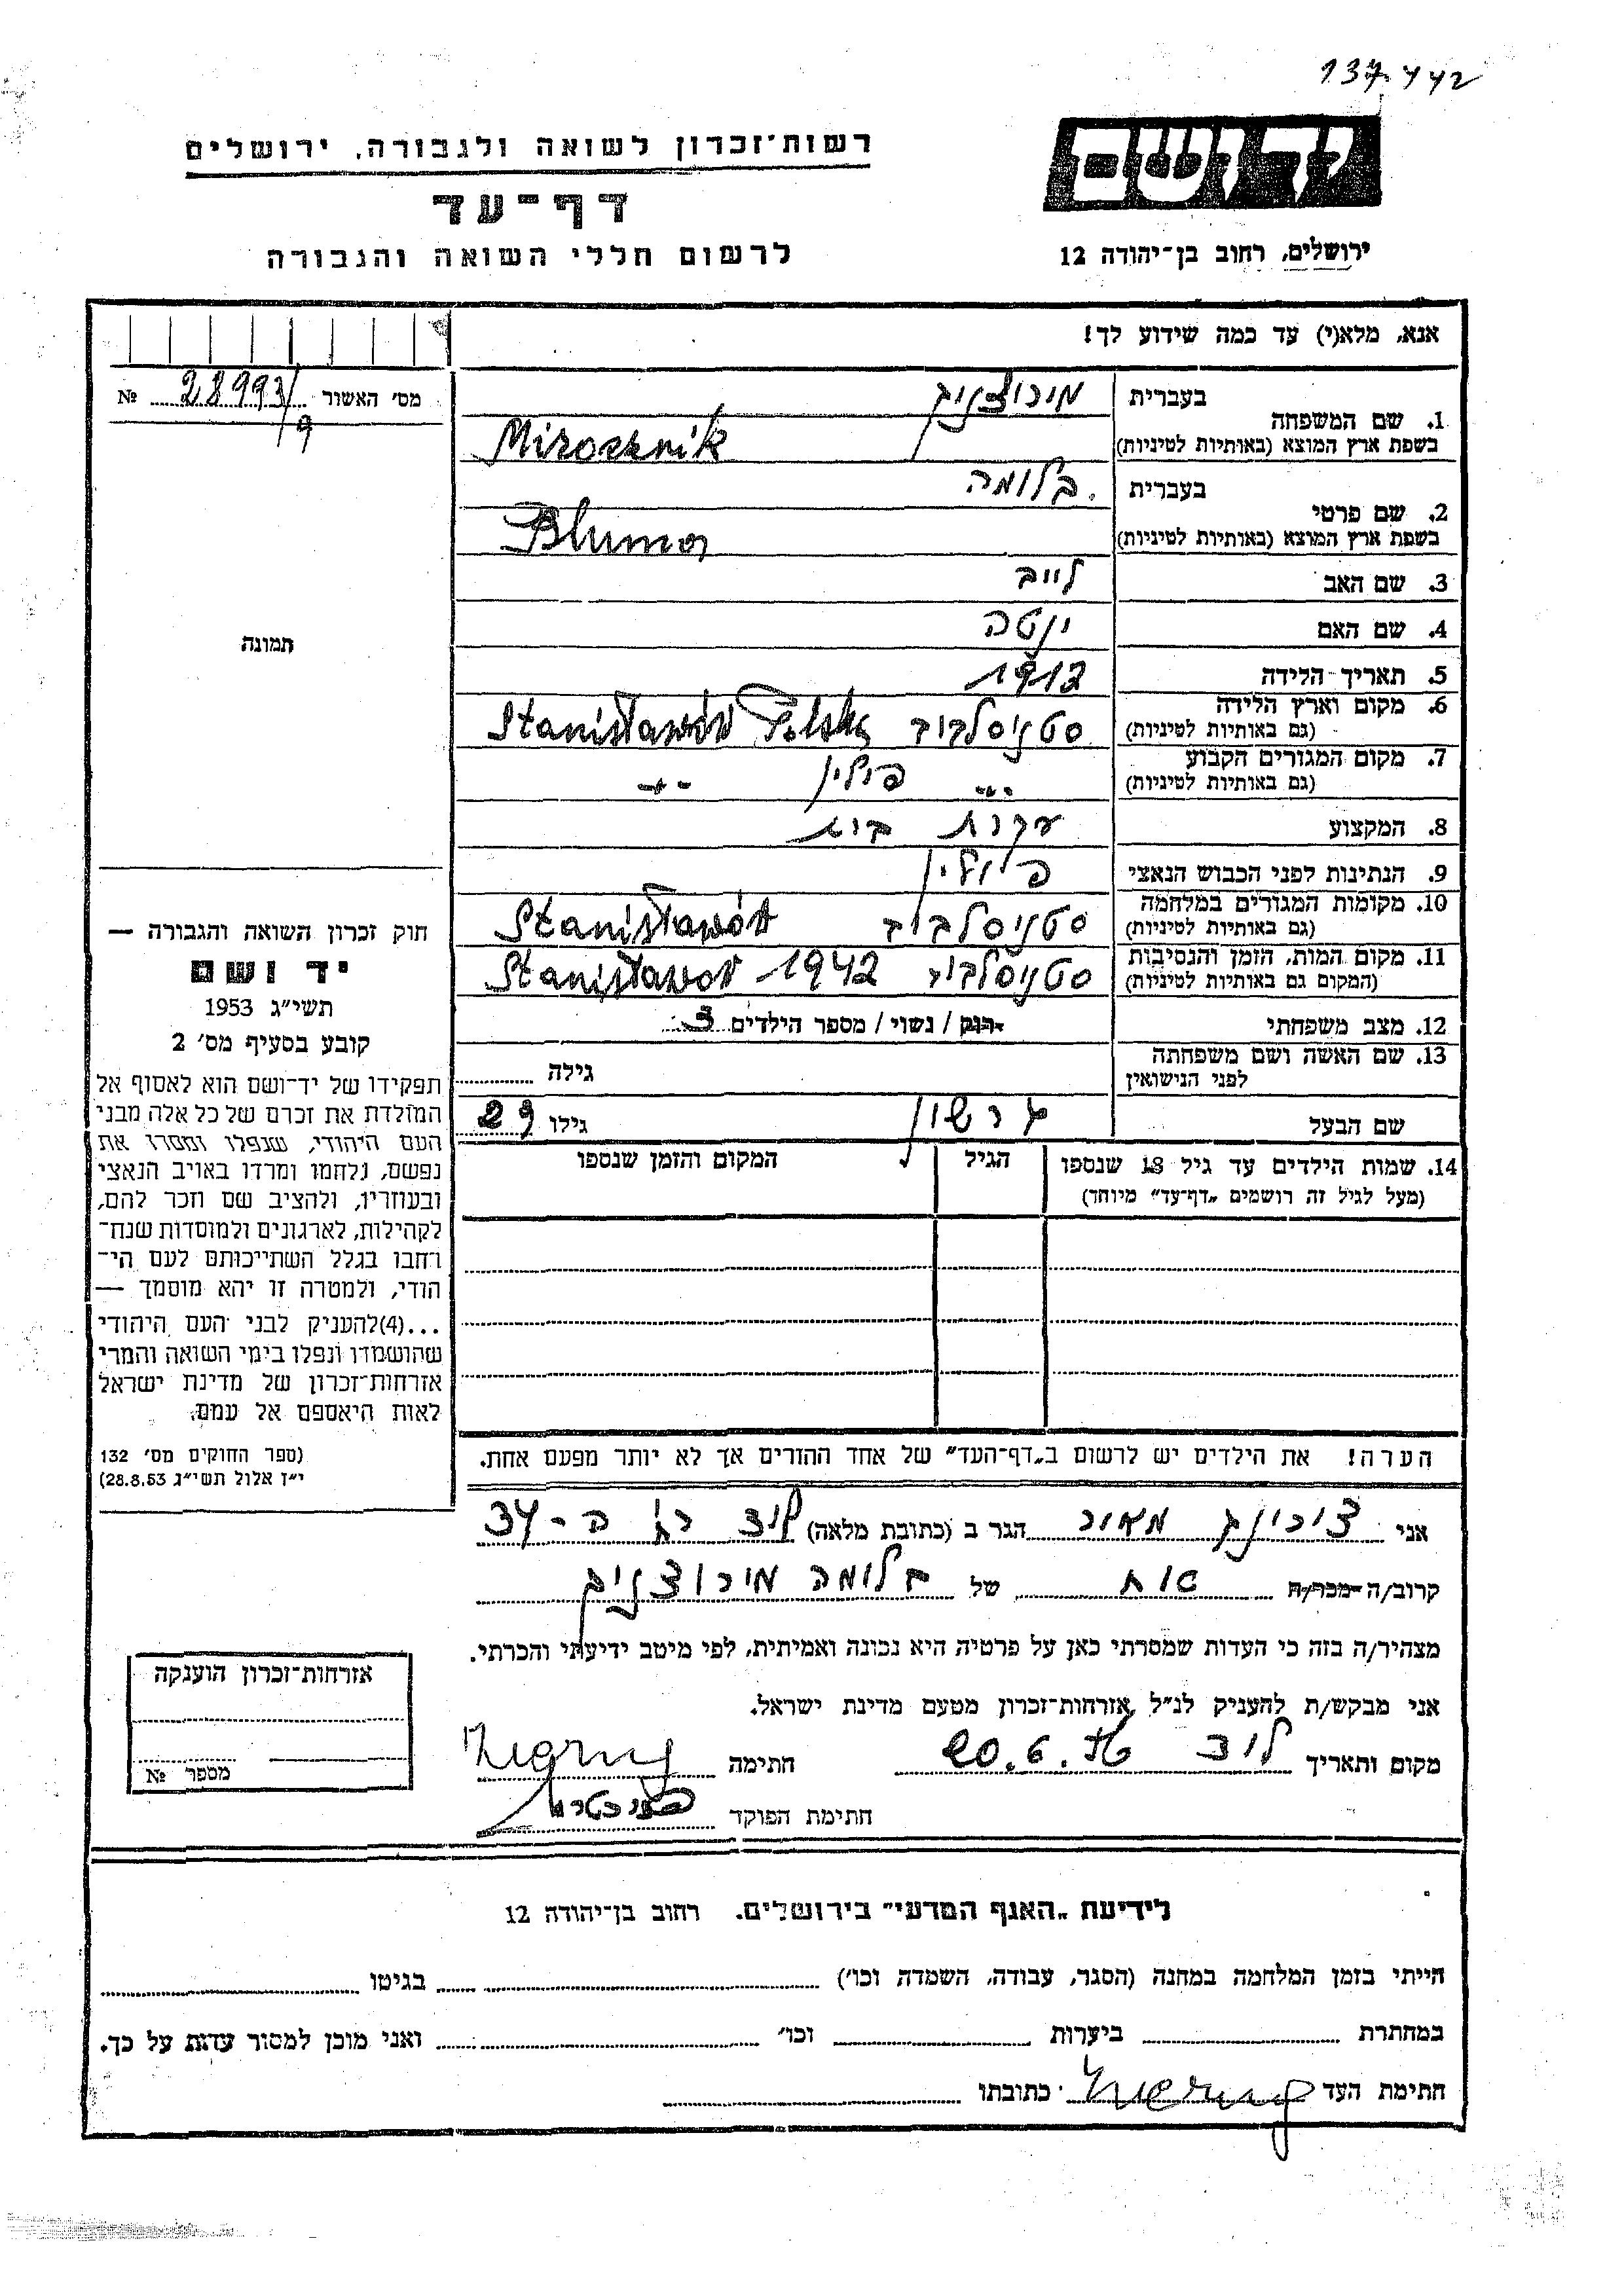 137442
יד ושם
רשות־זכרון לשואה ולגבורה, ירושלים
דף־עד
לרשום חללי השואה והגבורה
ירושלים, רחוב בן־יהודה 12
אנא, מלא(י) עד כמה שידוע לך!
מס' האשור 28993/9 №
1. שם המשפחה
בעברית מירוצניק
בשפת ארץ המוצא (באותיות לטיניות) Mirosznik
2. שם פרטי
בעברית בלומה
בשפת ארץ המוצא (באותיות לטיניות) Bluma
3. שם האב לייב
4. שם האם ינטה
5. תאריך הלידה 1913
6. מקום וארץ הלידה
(גם באותיות לטיניות) סטניסלבוב Stanisławów Polska
7. מקום המגורים הקבוע
(גם באותיות לטיניות) -"- פולין -"-
8. המקצוע עקרת בית
9. הנתינות לפני הכבוש הנאצי פולין
10. מקומות המגורים במלחמה
(גם באותיות לטיניות) סטניסלבוב Stanisławów
11. מקום המות, הזמן והנסיבות
(המקום גם באותיות לטיניות) סטניסלבוב Stanisławow 1942
12. מצב משפחתי רווק / נשוי / מספר הילדים 3
13. שם האשה ושם משפחתה
לפני הנישואין גילה
שם הבעל גרשון גילו 29
14. שמות הילדים עד גיל 18 שנספו הגיל המקום והזמן שנספו
(מעל לגיל זה רושמים „דף־עד" מיוחד)
הערה! את הילדים יש לרשום ב„דף־העד" של אחד ההורים אך לא יותר מפעם אחת.
תמונה
חוק זכרון השואה והגבורה —
יד ושם
תשי"ג 1953
קובע בסעיף מס' 2
תפקידו של יד־ושם הוא לאסוף אל
המולדת את זכרם של כל אלה מבני
העם היהודי, שנפלו ומסרו את
נפשם, נלחמו ומרדו באויב הנאצי
ובעוזריו, ולהציב שם וזכר להם,
לקהילות, לארגונים ולמוסדות שנח־
רבו בגלל השתייכותם לעם הי־
הודי, ולמטרה זו יהא מוסמך —
...(4)להעניק לבני העם היהודי
שהושמדו ונפלו בימי השואה והמרי
אזרחות־זכרון של מדינת ישראל
לאות היאספם אל עמם.
(ספר החוקים מס' 132
י"ז אלול תשי"ג 28.8.53)
אני מאיר הגר ב (כתובת מלאה) לוד
קרוב/ה מכר/ה של בלומה מירוצניק
מצהיר/ה בזה כי העדות שמסרתי כאן על פרטיה היא נכונה ואמיתית, לפי מיטב ידיעתי והכרתי.
אני מבקש/ת להעניק לנ"ל אזרחות־זכרון מטעם מדינת ישראל.
מקום ותאריך לוד 20.6.56 חתימה
חתימת הפוקד
אזרחות־זכרון הוענקה
מספר №
לידיעת „האגף המדעי" בירושלים. רחוב בן־יהודה 12
הייתי בזמן המלחמה במחנה (הסגר, עבודה, השמדה וכו') בגיטו
במחתרת ביערות וכו' ואני מוכן למסור עדות על כך.
חתימת העד כתובתו